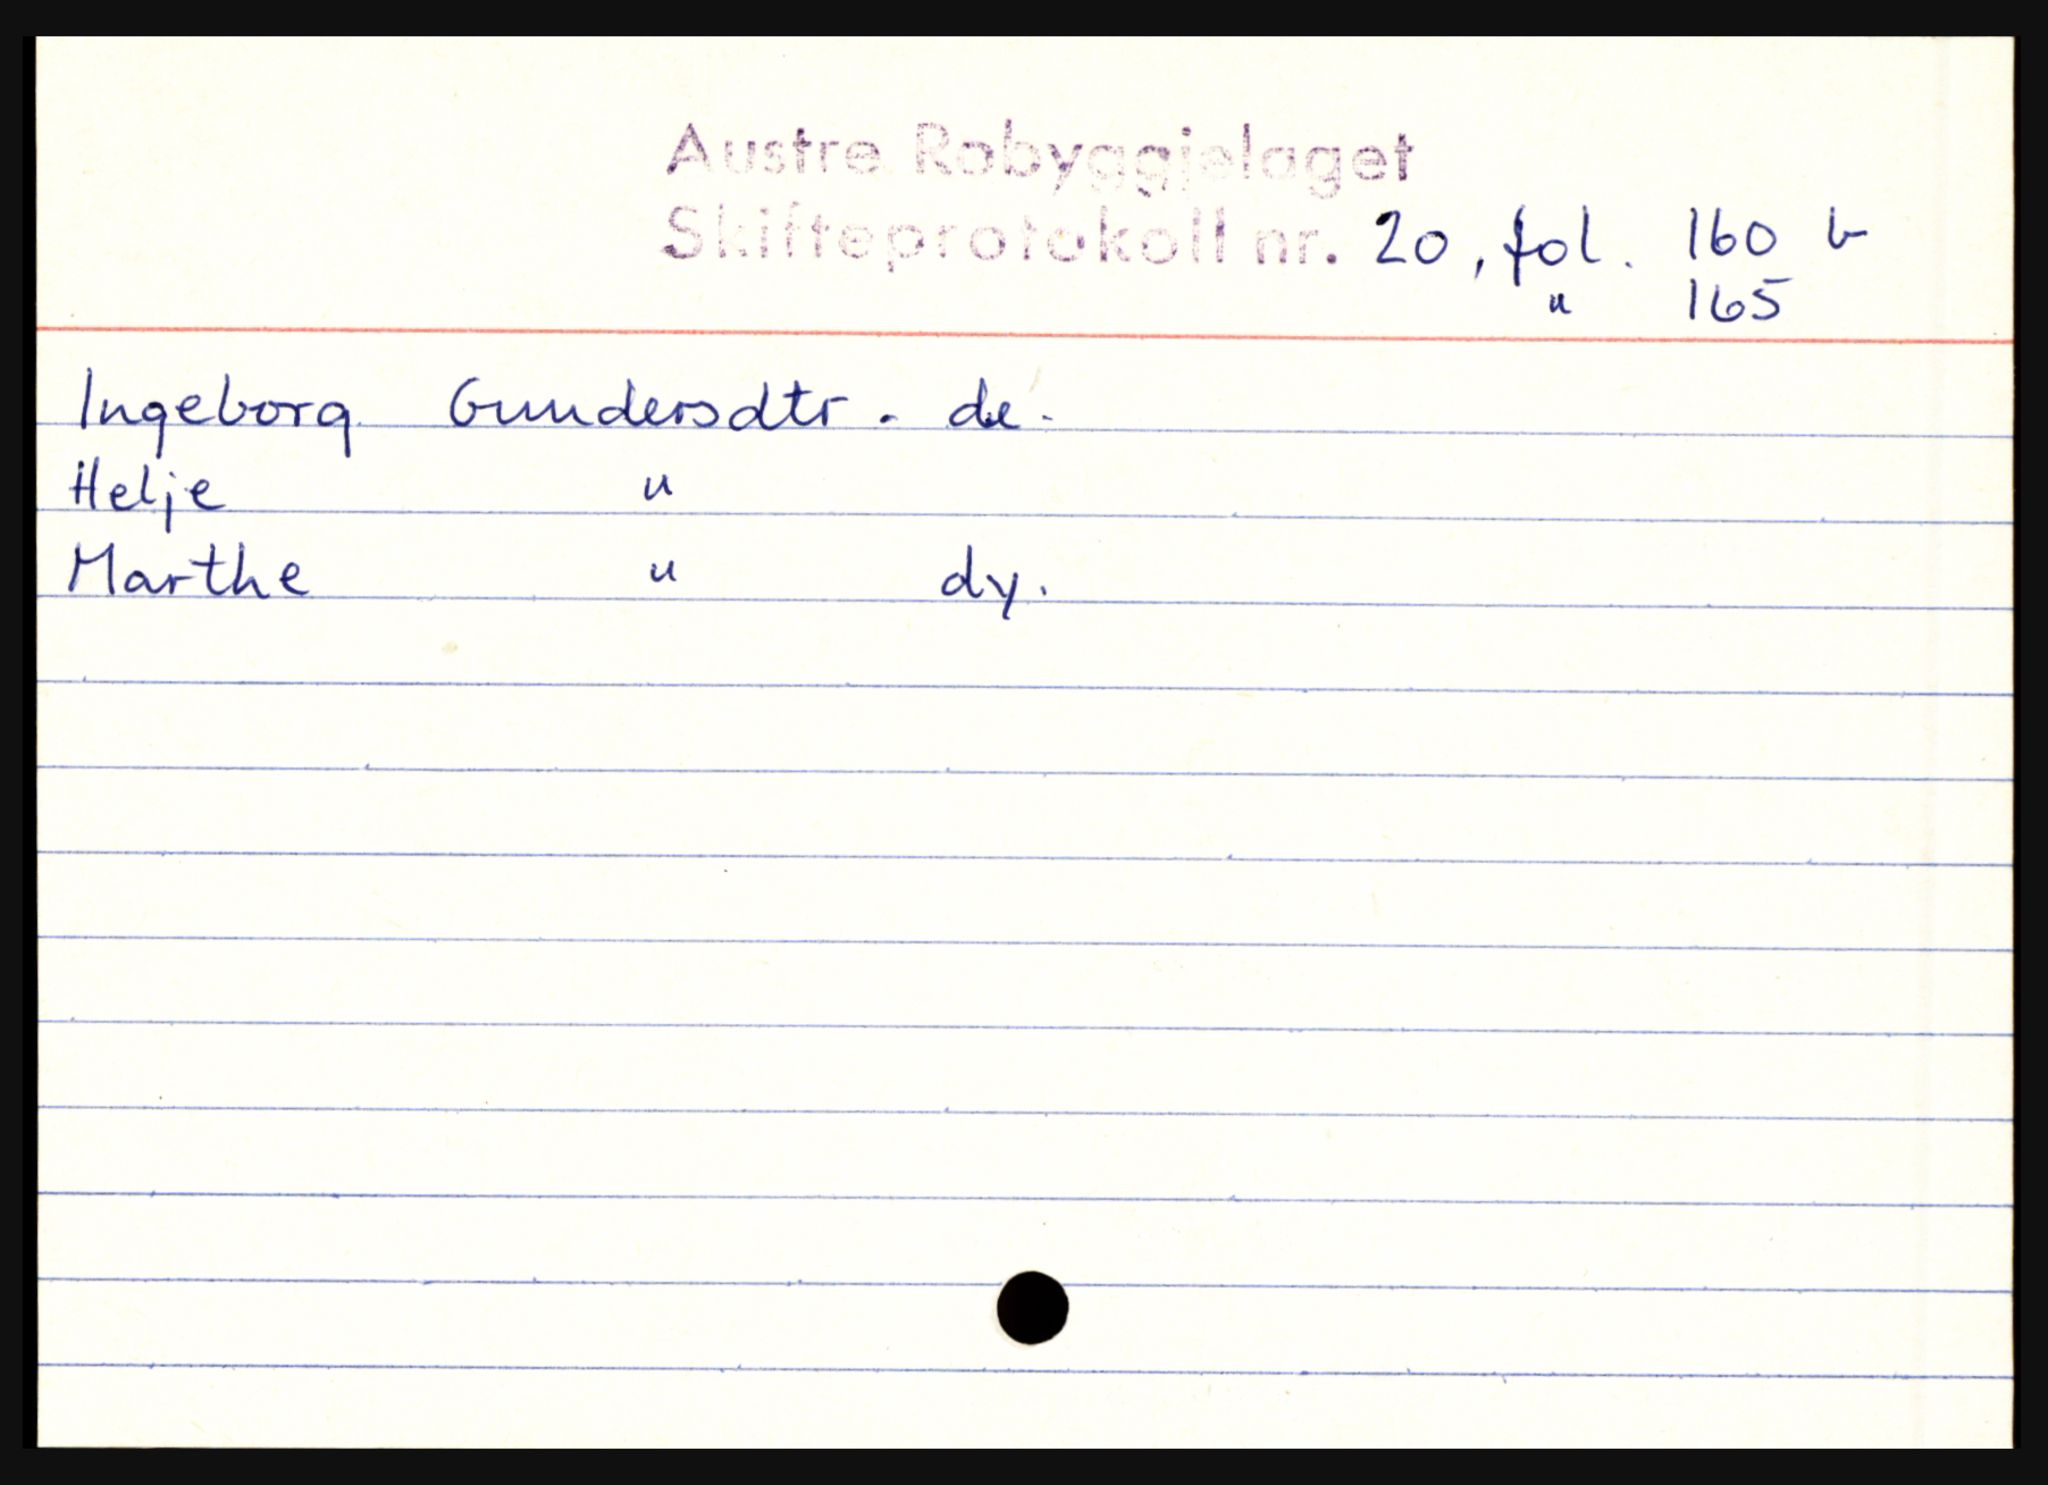 Austre Robyggjelaget
Skifteprotokoll nr. 20, fol. 160 b
" 165
Ingeborg Gundersdtr. de.
Helje "
Marthe " dy.